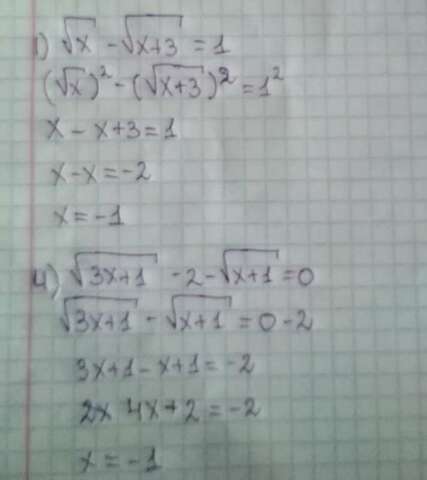 1) √x - √(x+3) = 1
(√x)² - (√(x+3))² = 1²
x - x+3 = 1
x - x = -2
x = -1
4) √(3x+1) - 2 - √(x+1) = 0
√(3x+1) - √(x+1) = 0 - 2
3x+1 - x+1 = -2
2x 4x+2 = -2
x = -1